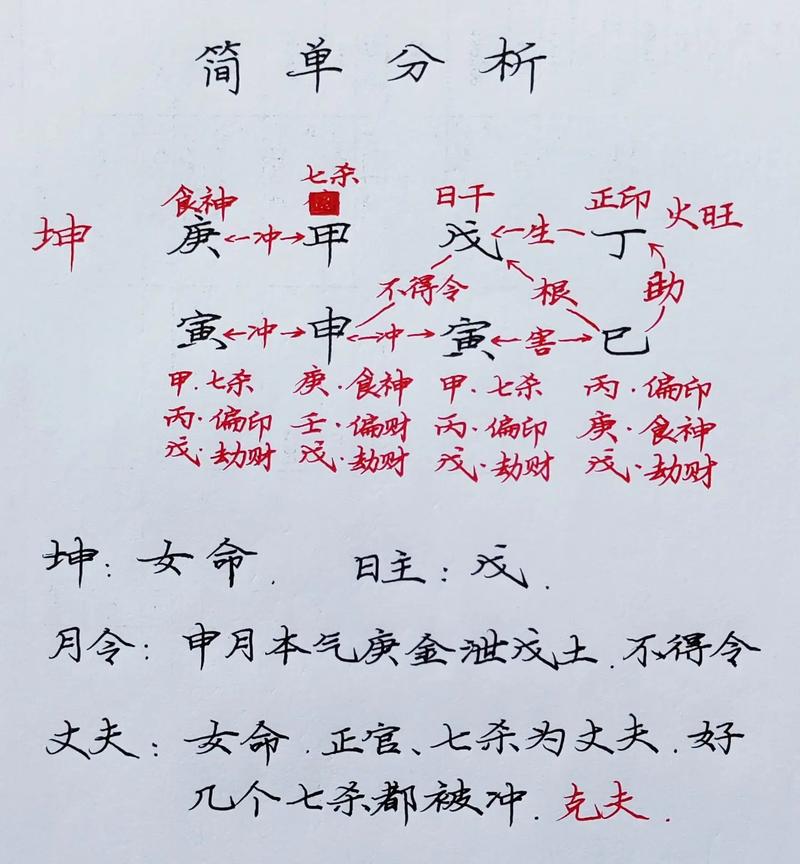 简单分析
食神 七杀 日干 正印 火旺
坤 庚 ←冲→ 甲 戊 ←生— 丁
不得令 根 助
寅 ←冲→ 申 ←冲→ 寅 ←害→ 巳
甲·七杀 庚·食神 甲·七杀 丙·偏印
丙·偏印 壬·偏财 丙·偏印 庚·食神
戊·劫财 戊·劫财 戊·劫财 戊·劫财
坤:女命. 日主:戊.
月令:申月本气庚金泄戊土.不得令
丈夫:女命.正官、七杀为丈夫.好
几个七杀都被冲.克夫.